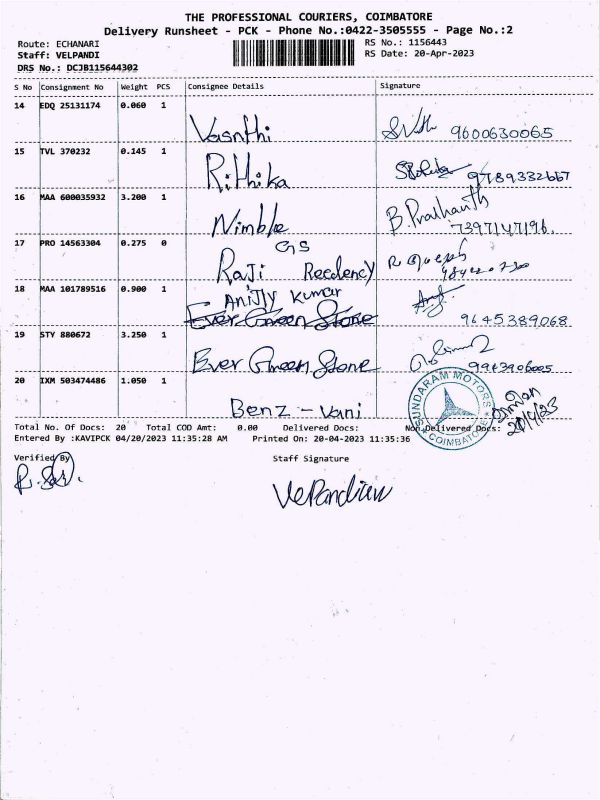 THE PROFESSIONAL COURIERS, COIMBATORE
Delivery Runsheet - PCK - Phone No.:0422-3505555 - Page No.:2
Route: ECHANARI
RS No.: 1156443
Staff: VELPANDI
RS Date: 20-Apr-2023
DRS No.: DCJB115644302
S No Consignment No Weight PCS Consignee Details Signature
14 EDQ 25131174 0.060 1
Vasnthi 9600630065
15 TVL 370232 0.145 1
Rithika 9789332667
16 MAA 600035932 3.200 1
Nimble B. Prashanth 7397147196.
17 PRO 14563304 0.275 0
GS
Raji Recdency
18 MAA 101789516 0.900 1
Kumar
Ever Green Stone 9645389068
19 STY 880672 3.250 1
Ever Green Stone 9943906005
20 IXM 503474486 1.050 1
Benz - Vani
SUNDARAM MOTORS
COIMBATORE
Total No. Of Docs: 20 Total COD Amt: 0.00 Delivered Docs: Non Delivered Docs:
Entered By :KAVIPCK 04/20/2023 11:35:28 AM Printed On: 20-04-2023 11:35:36
Verified By Staff Signature